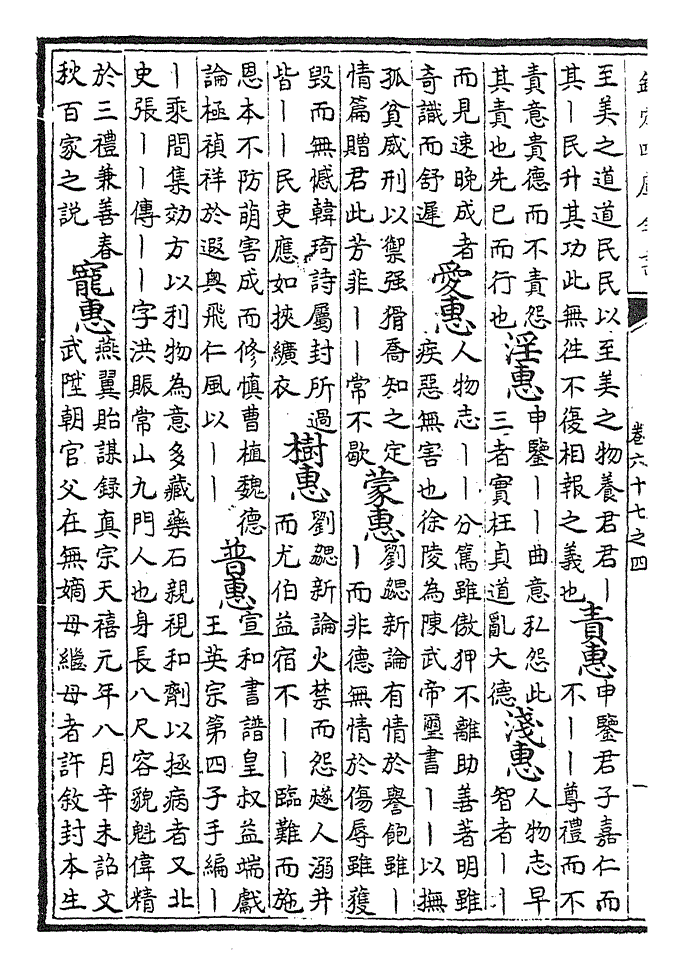 欽定四庫全書
卷六十七之四
一
至美之道道民民以至美之物養君君丨
其丨民升其功此無往不復相報之義也
責惠
申鑒君子嘉仁而
不丨丨尊禮而不
責意貴德而不責怨
其責也先已而行也
淫惠
申鑒丨丨曲意私怨此
三者實枉貞道亂大德
淺惠
人物志早
智者丨丨
而見速晚成者
奇識而舒遲
愛惠
人物志丨丨分篤雖傲狎不離助善著明雖
疾惡無害也徐陵為陳武帝璽書丨丨以撫
孤貧威刑以禦强猾喬知之定
情篇贈君此芳菲丨丨常不歇
蒙惠
劉勰新論有情於譽飽雖丨
丨而非德無情於傷辱雖獲
毀而無憾韓琦詩屬封所過
皆丨丨民吏應如挾纊衣
樹惠
劉勰新論火禁而怨燧人溺井
而尤伯益宿不丨丨臨難而施
恩本不防萌害成而修慎曹植魏德
論極禎祥於遐奧飛仁風以丨丨
普惠
宣和書譜皇叔益端獻
王英宗第四子手編丨
丨乘間集効方以利物為意多藏藥石親視和劑以拯病者又北
史張丨丨傳丨丨字洪賑常山九門人也身長八尺容貌魁偉精
於三禮兼善春
秋百家之説
寵惠
燕翼貽謀録真宗天禧元年八月辛未詔文
武陞朝官父在無嫡母繼母者許敘封本生